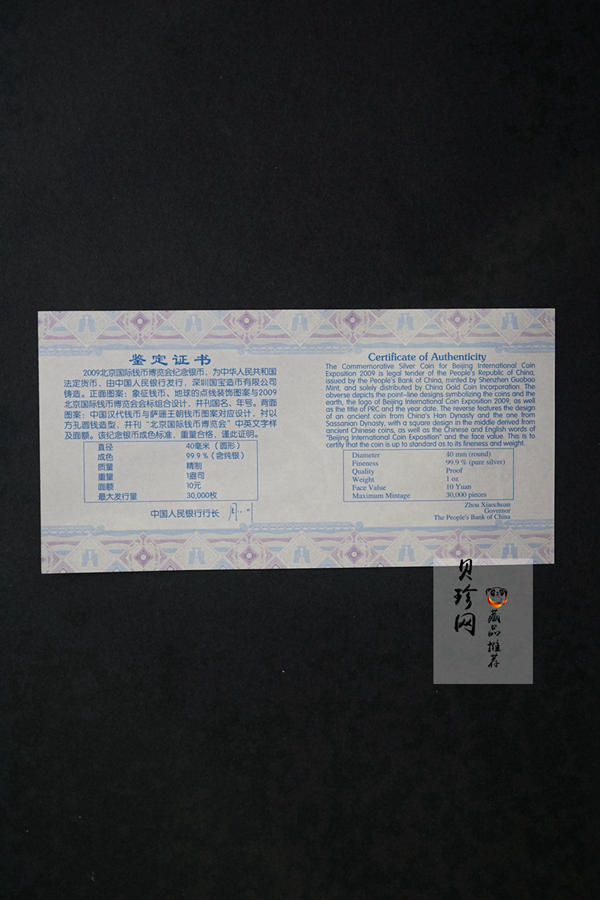 鉴定证书
2009北京国际钱币博览会纪念银币，为中华人民共和国
法定货币，由中国人民银行发行，深圳国宝造币有限公司
铸造。正面图案：象征钱币、地球的点线装饰图案与2009
北京国际钱币博览会会标组合设计，并刊国名、年号。背面
图案：中国汉代钱币与萨珊王朝钱币图案对应设计，衬以
方孔圆钱造型，并刊“北京国际钱币博览会”中英文字样
及面额。该纪念银币成色标准，重量合格，谨此证明。
直径 40毫米（圆形）
成色 99.9％（含纯银）
质量 精制
重量 1盎司
面额 10元
最大发行量 30,000枚
中国人民银行行长
Certificate of Authenticity
The Commemorative Silver Coin for Beijing International Coin
Exposition 2009 is legal tender of the People's Republic of China,
issued by the People's Bank of China, minted by Shenzhen Guobao
Mint, and solely distributed by China Gold Coin Incorporation. The
obverse depicts the point-line designs symbolizing the coins and the
earth, the logo of Beijing International Coin Exposition 2009, as well
as the title of PRC and the year date. The reverse features the design
of an ancient coin from China's Han Dynasty and the one from
Sassanian Dynasty, with a square design in the middle derived from
ancient Chinese coins, as well as the Chinese and English words of
"Beijing International Coin Exposition" and the face value. This is to
certify that the coin is up to standard as to its fineness and weight.
Diameter 40 mm (round)
Fineness 99.9 % (pure silver)
Quality Proof
Weight 1 oz
Face Value 10 Yuan
Maximum Mintage 30,000 pieces
Zhou Xiaochuan
Governor
The People's Bank of China
贝珍网
藏品推荐